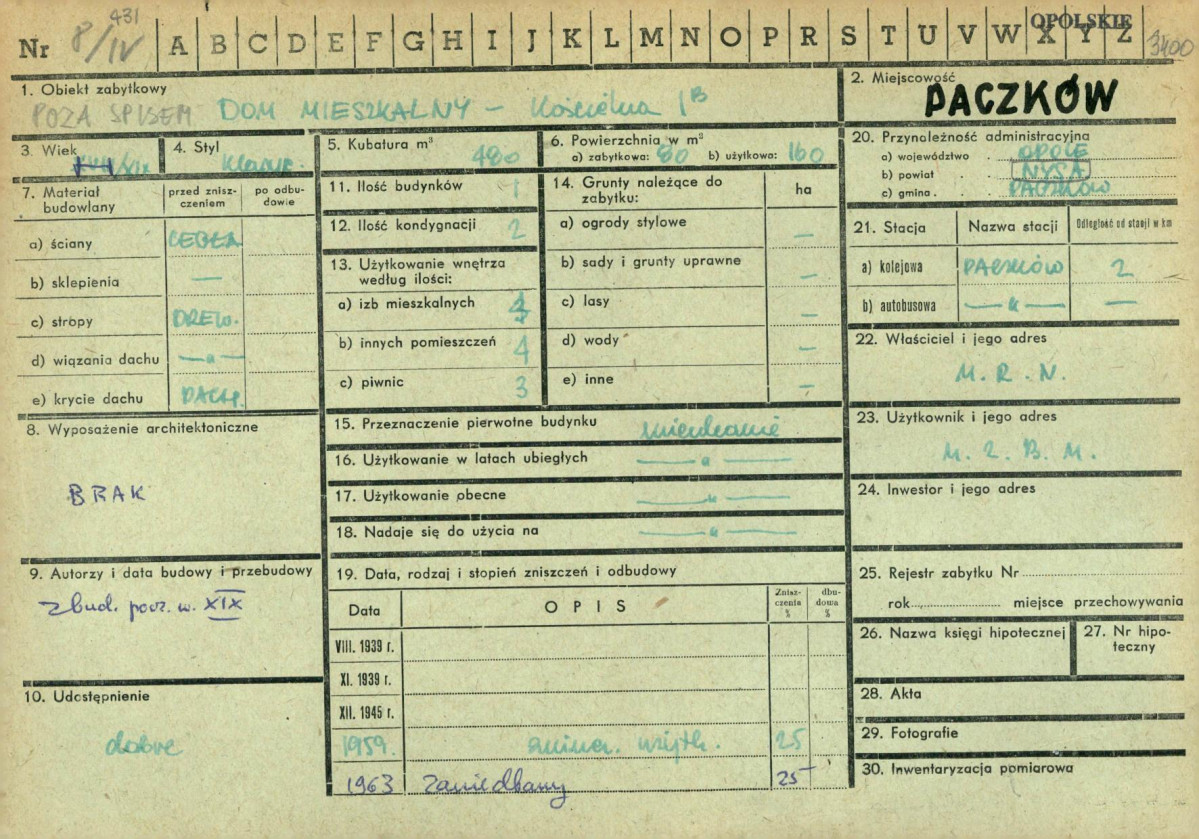 Nr 8/IV 431 A B C D E F G H I J K L M N O P R S T U V W X Y Z OPOLSKIE 3400
1. Obiekt zabytkowy
POZA SPISEM DOM MIESZKALNY – Kościelna 1B
2. Miejscowość
PACZKÓW
3. Wiek
XIX
4. Styl
klasyc.
5. Kubatura m³ 480
6. Powierzchnia w m²
a) zabytkowa: 80 b) użytkowa: 160
20. Przynależność administracyjna
a) województwo . OPOLE
b) powiat . . NYSA
c) gmina . . PACZKÓW
7. Materiał budowlany
przed zniszczeniem
po odbudowie
a) ściany CEGŁA
b) sklepienia —
c) stropy DREW.
d) wiązania dachu —„—
e) krycie dachu DACH.
11. Ilość budynków 1
12. Ilość kondygnacji 2
13. Użytkowanie wnętrza według ilości:
a) izb mieszkalnych
b) innych pomieszczeń 4
c) piwnic 3
14. Grunty należące do zabytku:
ha
a) ogrody stylowe —
b) sady i grunty uprawne —
c) lasy —
d) wody —
e) inne —
21. Stacja
Nazwa stacji
Odległość od stacji w km
a) kolejowa PACZKÓW 2
b) autobusowa —„— —
22. Właściciel i jego adres
M. R. N.
8. Wyposażenie architektoniczne
BRAK
15. Przeznaczenie pierwotne budynku mieszkanie
16. Użytkowanie w latach ubiegłych —„—
17. Użytkowanie obecne —„—
18. Nadaje się do użycia na —„—
23. Użytkownik i jego adres
M. Z. B. M.
24. Inwestor i jego adres
9. Autorzy i data budowy i przebudowy
zbud. pocz. w. XIX
19. Data, rodzaj i stopień zniszczeń i odbudowy
Data
OPIS
Zniszczenia %
dbudowa %
VIII. 1939 r.
XI. 1939 r.
XII. 1945 r.
1959. 25
1963 zaniedbany 25
10. Udostępnienie
dobre
25. Rejestr zabytku Nr
rok miejsce przechowywania
26. Nazwa księgi hipotecznej
27. Nr hipoteczny
28. Akta
29. Fotografie
30. Inwentaryzacja pomiarowa